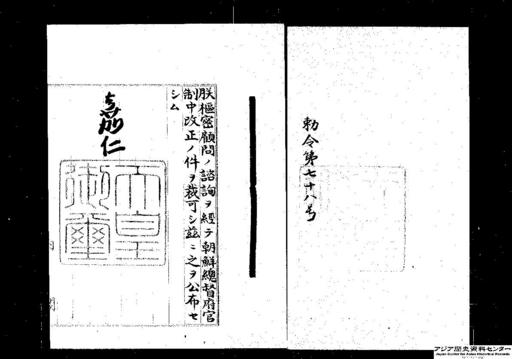 勅令第七十八号
朕樞密顧問ノ諮詢ヲ經テ朝鮮總督府官
制中改正ノ件ヲ裁可シ茲ニ之ヲ公布セ
シム
嘉仁
天皇
御璽
アジア歴史資料センター
Japan Center for Asian Historical Records